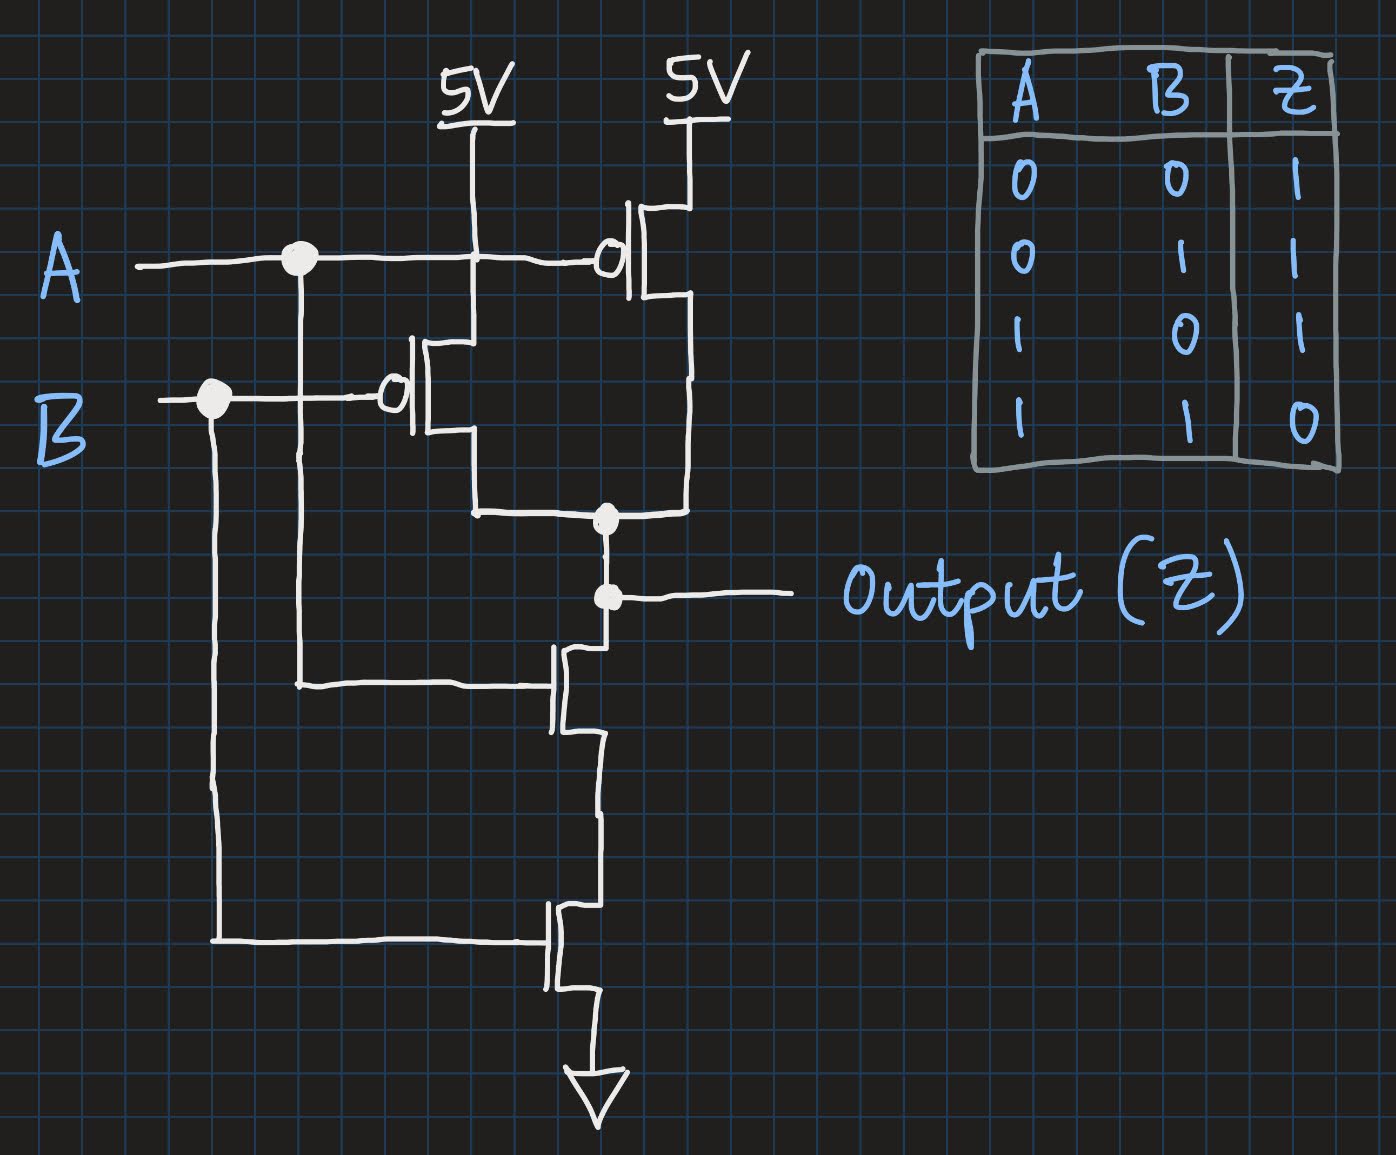 5V 5V
A
B
Output (Z)
A B Z
0 0 1
0 1 1
1 0 1
1 1 0